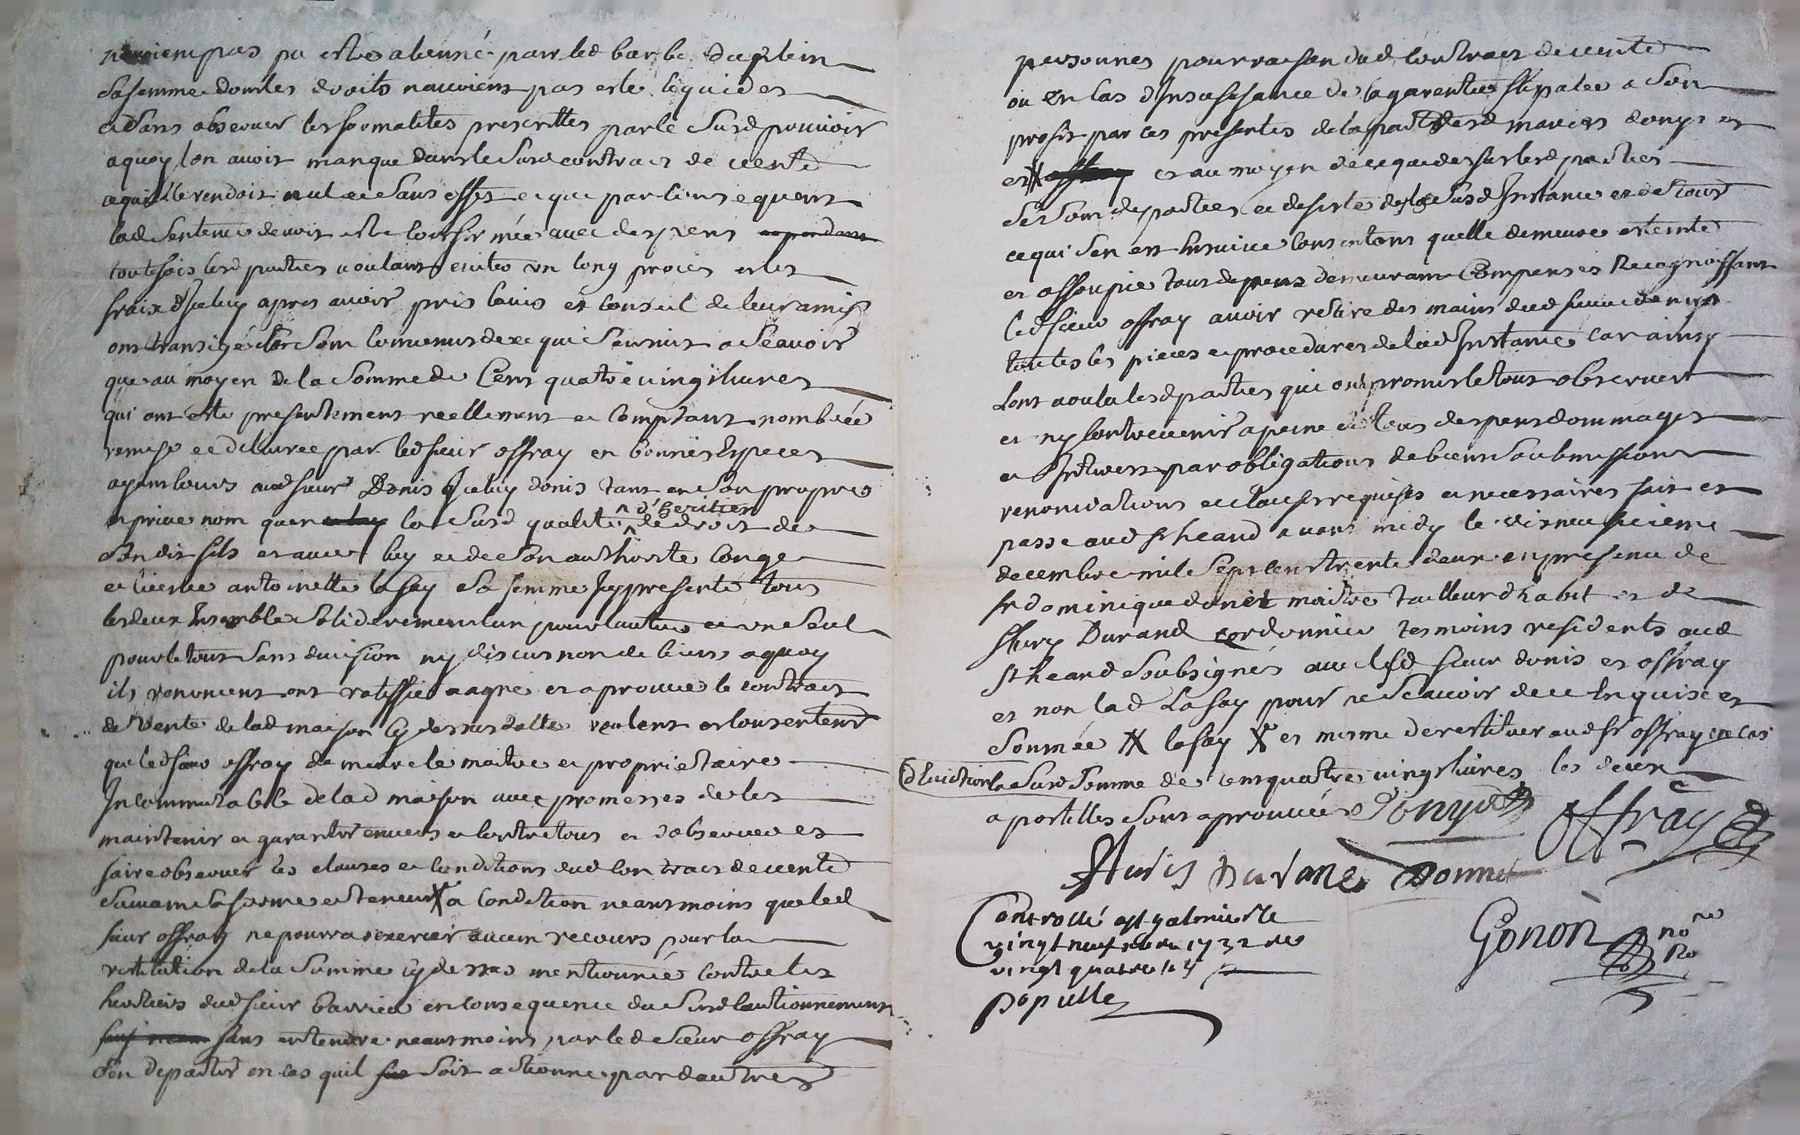 pas pu estre alienné par led barbe duplein
sa femme dont les droits navoient pas este liquides
et sans observer les formalites prescrittes par le susd pouvoir
a quoy lon avoit manque dans le susd contract de vente
ce qui le rendoit nul et sans effet et que par consequent
lad sentence devoit estre confirmée avec despens
toutesfois lesd parties voulant eviter un long proces et les
fraix d'iceluy apres avoir pris lavis et conseil de leurs amis
ont transigé et sont convenus de ce qui sensuit a scavoir
que au moyen de la somme de cent quatre vingt livres
qui ont esté presentement reellement et comptant nombrée
remise et delivrée par led sieur offray en bonnes especes
ayant cours aud sieur Denis Iceluy denis tant en son propre
et prive nom que en la susd qualité d'heritier de droit de
son dit fils et avec luy et de son authorité conge
et licence antoinette lafay sa femme Icy presente tous
les deux Ensemble solidairement lun pour lautre et un seul
pour le tout sans division ny discussion de biens a quoy
ils renoncent ont ratiffié aagrée et aprouvé le contract
de vente de lad maison cy dessus datte veulent et consentent
que led sieur offray demeure le maitre et proprietaire
Incommutable de lad maison avec promesses de les
maintenir et garantir envers et contre tous et dobserver et
faire observer les clauses et conditions dud contract de vente
suivant sa forme et teneur X a condition neantmoins que led
sieur offray ne pourra exercer aucun recours pour la
restitution de la somme cy dessus mentionnée contre les
heritiers dud sieur barrieu en consequence du susd cautionnement
sans entendre neantmoins par led sieur offray
son departir en cas quil soit actionné par dautres
personnes pour raison dud contract de vente
ou en cas d'Insufisance de la garentie stipulee a son
profit par ces presentes de la part desd maries donys et
et X et au moyen de ce que dessus lesd parties
se sont departies et desiste de la susd Instance et de tout
ce qui sen est ensuivi consentans quelle demeure esteinte
et assoupie tous depens demeurans compensés Recognoissant
led sieur offray avoir retire des mains dud sieur denys
toutes les pieces et procedures de lad Instance car ainsy
lont voulu lesd parties qui ont promis le tout observer
et ny contrevenir a peine de tous despens dommages
et Interest par obligations de biens soubmissions
renonciations et clauses requises et necessaires fait et
passe aud st heand avant midy le dixneufvieme
decembre mil sept cent trente deux en presence de
sr dominique donet maitre tailleur d'habit et de
fleury Durand cordonnier tesmoins residents aud
st heand soubsignés avec lesd sieur denis et offray
et non lad Lafay pour ne scavoir de ce Enquise et
sommée X lafay X et mesme de restituer aud sr offray en cas
d'Eviction la susd somme de cent quatre vingt livres les deux
apostilles sont aprouvées Donys
offray
fleuris Durand Donnet
Controllé a st galmier le
vingt neuf xbre 1732 reu
vingt quatre s
Populle
Gonon nore
Ro